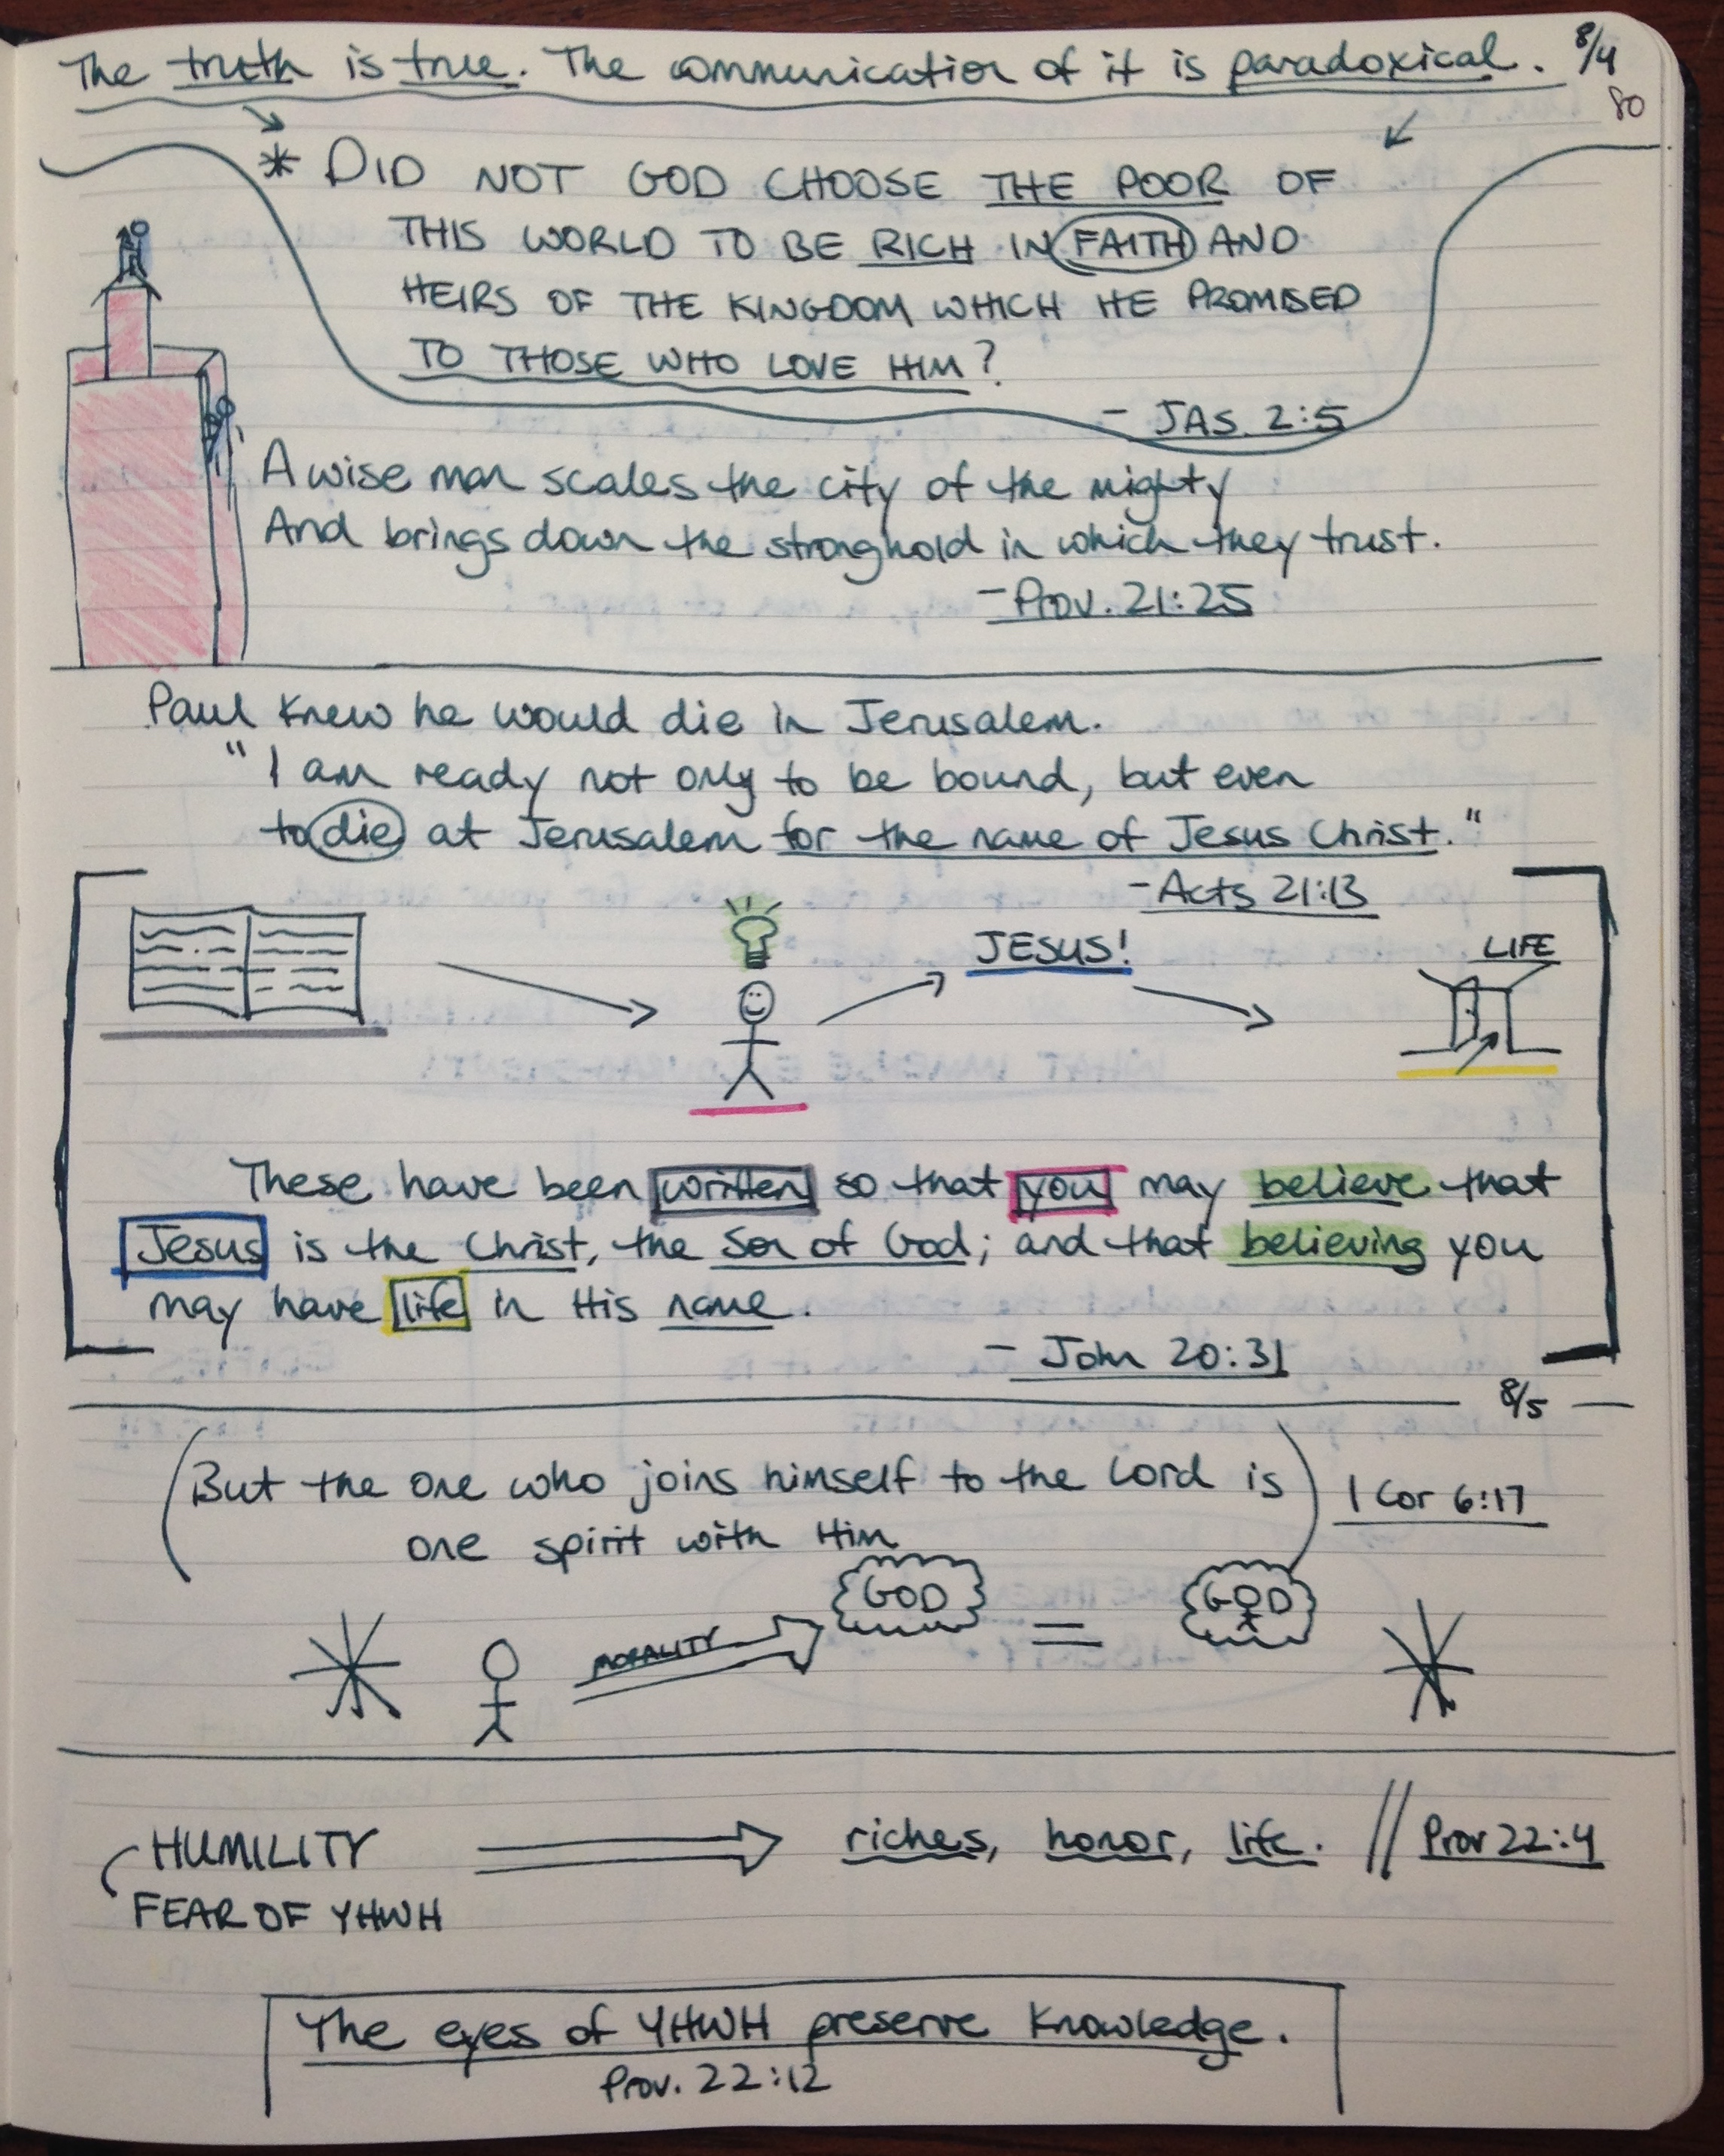 The truth is true. The communication of it is paradoxical. 8/4
80
* DID NOT GOD CHOOSE THE POOR OF
THIS WORLD TO BE RICH IN FAITH AND
HEIRS OF THE KINGDOM WHICH HE PROMISED
TO THOSE WHO LOVE HIM?
- JAS. 2:5
A wise man scales the city of the mighty
And brings down the stronghold in which they trust.
- Prov. 21:25
Paul knew he would die in Jerusalem.
"I am ready not only to be bound, but even
to die at Jerusalem for the name of Jesus Christ."
- Acts 21:13
JESUS!
LIFE
These have been written so that you may believe that
Jesus is the Christ, the Son of God; and that believing you
may have life in His name.
- John 20:31
8/5
But the one who joins himself to the Lord is
one spirit with Him
1 Cor 6:17
MORALITY
GOD
=
GOD
HUMILITY
FEAR OF YHWH
riches, honor, life. // Prov 22:4
The eyes of YHWH preserve knowledge.
Prov. 22:12